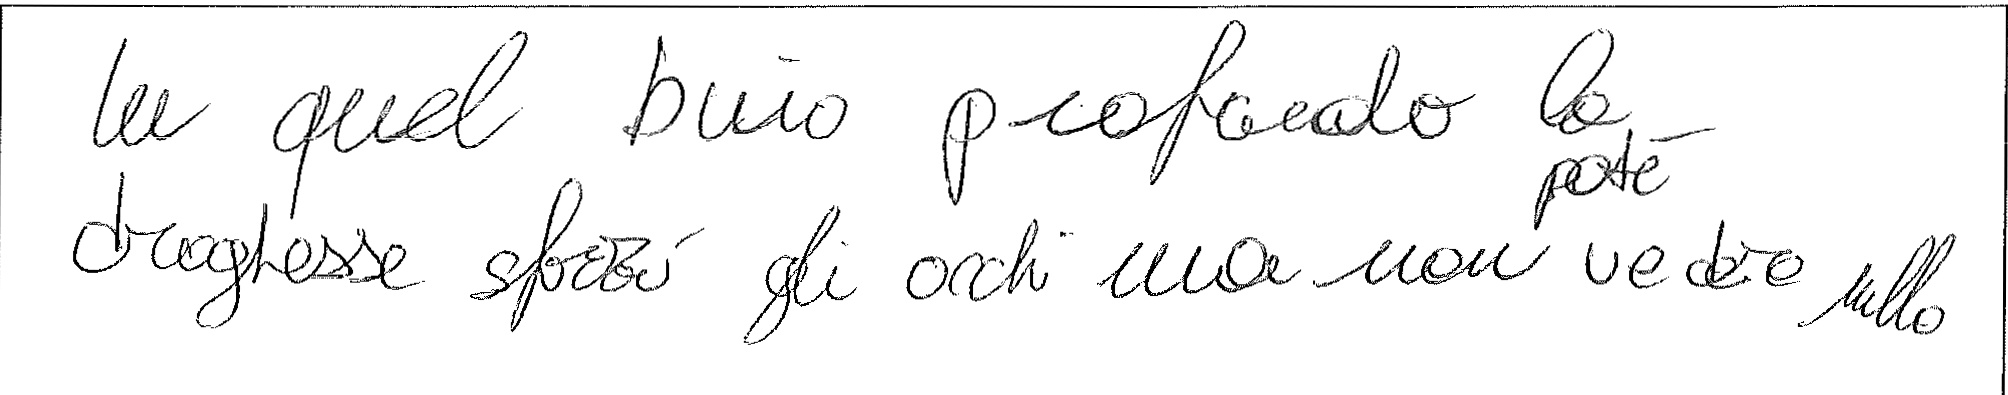 In quel buio profondo la
draghessa sforzó gli occhi ma non poté vedere nulla